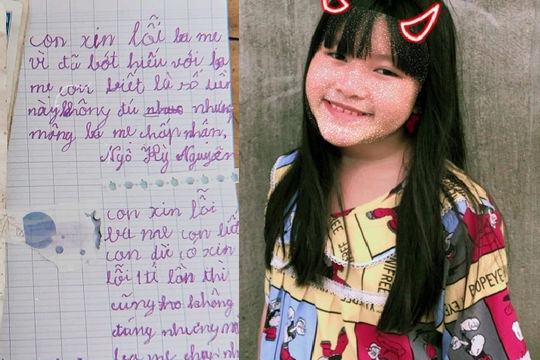 con xin lỗi ba mẹ
vì đã bớt hiếu với ba
mẹ con biết là số tiền
này không đủ nhưng
mong ba mẹ chấp nhận,
Ngô Hỷ Nguyên
con xin lỗi
ba mẹ con biết
con dù có xin
lỗi 1 tỉ lần thì
cũng không
đáng nhưng mong
ba mẹ chấp nhận
FREE
POPEYE